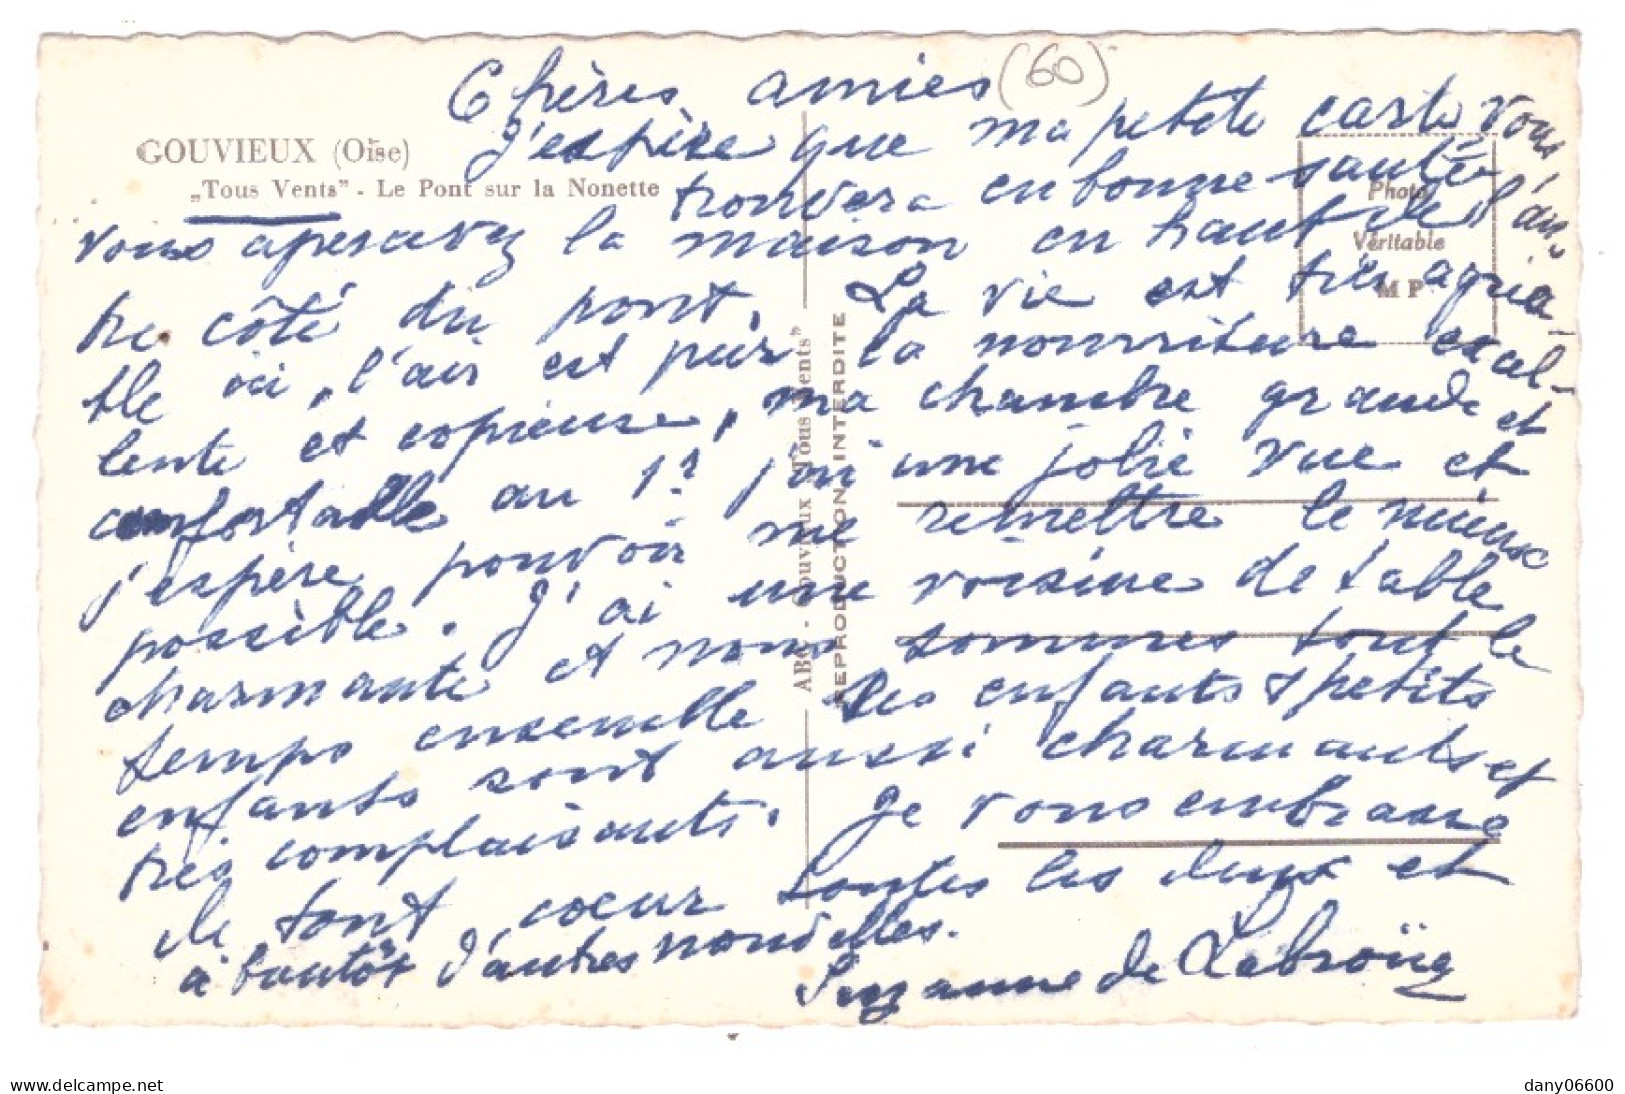 (60)
Chères amies
GOUVIEUX (Oise)
„Tous Vents" - Le Pont sur la Nonette
J'espère que ma petite carte vous
trouvera en bonne santée
vous apersevez la maison en haut de l'au-
tre côté du pont. La vie est très agréa-
ble ici, l'air est pur la nourriture excel-
lente et copieuse, ma chambre grande et
confortable au 1er j'ai une jolie vue et
j'espère pouvoir me remettre le mieux
possible. J'ai une voisine de table
charmante et nous sommes tout le
temps ensemble Les enfants & petits
enfants sont aussi charmants et
très complaisants. Je vous embrasse
de tout coeur toutes les deux et
à bientôt d'autres nouvelles.
Suzanne de
Photo
Véritable
M P
ABC - Gouvieux "Tous Vents"
REPRODUCTION INTERDITE
www.delcampe.net
dany06600